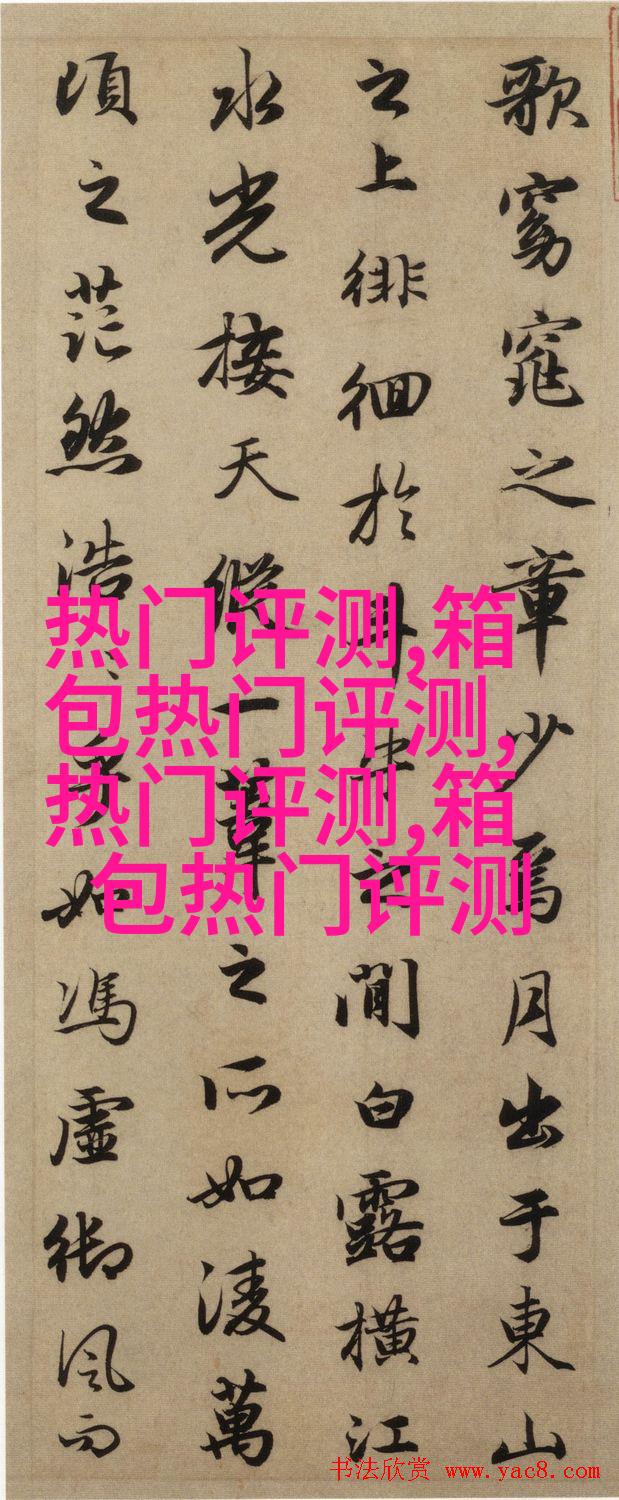 歌窈窕之章少焉月出于東山
之上徘徊於斗牛之間白露橫江
水光接天縱一葦之所如淩萬
頃之茫然浩〻乎如馮虛御風而
热门评测,箱
包热门评测,
热门评测,箱
包热门评测
书法欣赏 www.yac8.com